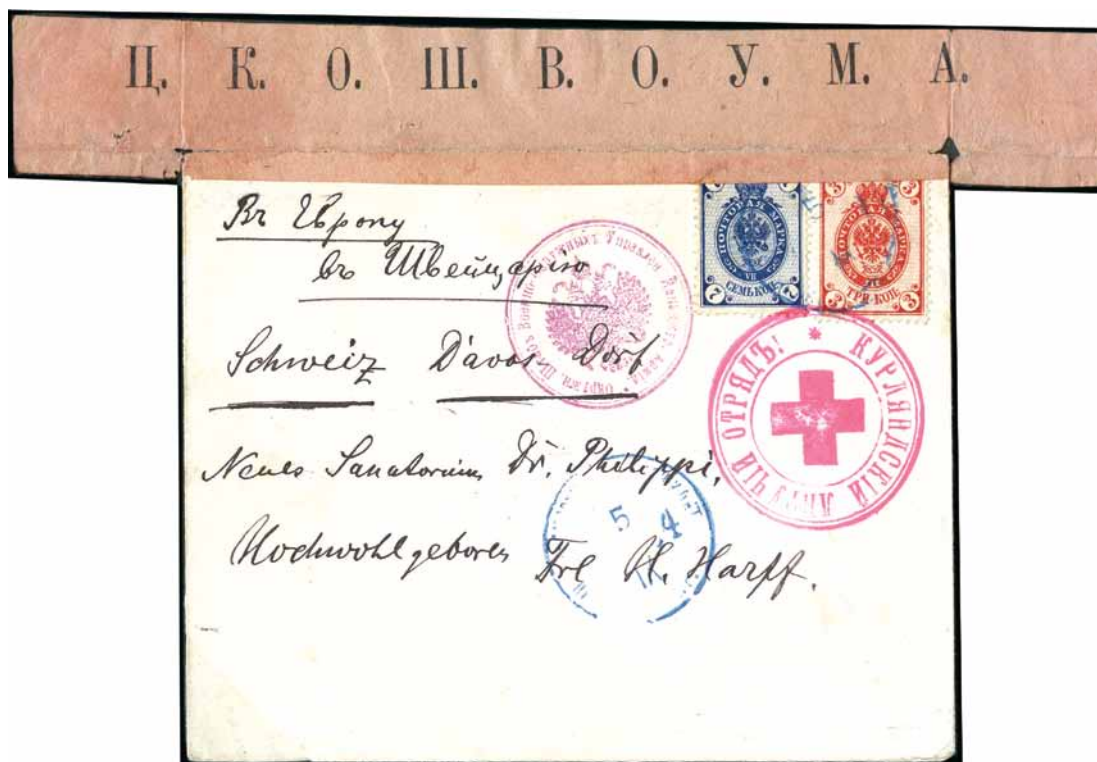 Ц. К. О. Ш. В. О. У. М. А.
Въ Европу
въ Швейцарію
Schweiz Davos-Dorf
Neues Sanatorium Dr. Philippi,
Hochwohlgeboren Frl H. Harff.
ПОЧТОВАЯ МАРКА
7 VII 7
СЕМЬ КОП.
3 3
ПОЧТОВАЯ МАРКА
3 III 3
ТРИ КОП.
* КУРЛЯНДСКІЙ ОТРЯДЪ!
5 4